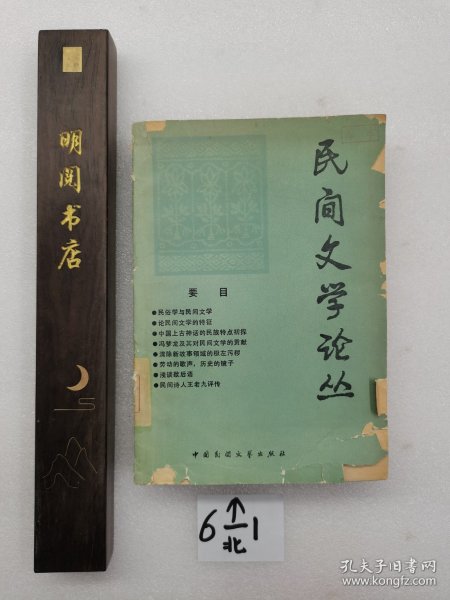 明阅书店
民间文学论丛
要目
●民俗学与民间文学
●论民间文学的特征
●中国上古神话的民族特点初探
●冯梦龙及其对民间文学的贡献
●清除新故事领域的极左污秽
●劳动的歌声，历史的镜子
●漫谈歇后语
●民间诗人王老九评传
中国民间文艺出版社
6↑1
北
孔夫子旧书网
www.kongfz.com